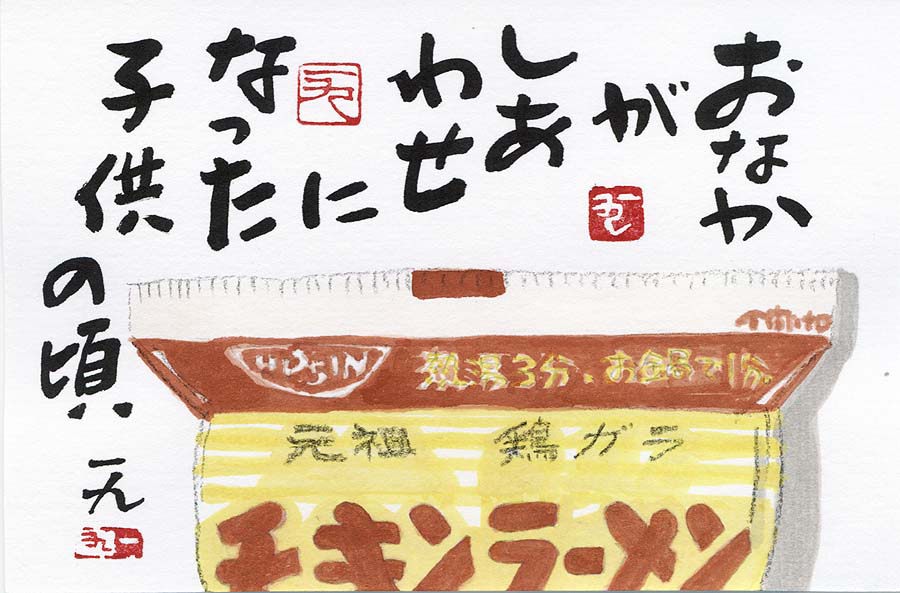 おなか
が
しあ
わせ
に
なった
子供の頃
一九
熱湯3分、お鍋で1分
元祖 鶏ガラ
チキンラーメン